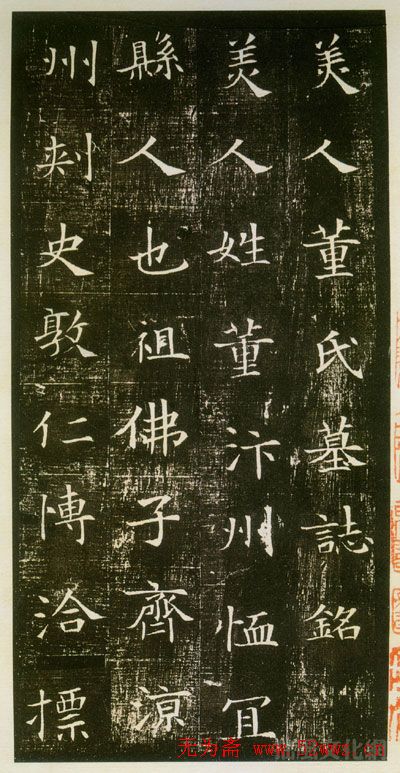 美人董氏墓誌銘
美人姓董汴州恤冝
縣人也祖佛子齊涼
州刺史敦仁博洽標
无为斋 www.52wws.cn